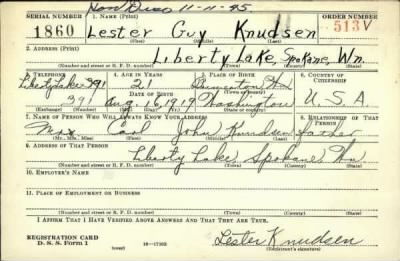 Hon Disc 11-11-45
SERIAL NUMBER 1. NAME (Print) ORDER NUMBER
1860 Lester Guy Knudsen 513V
(First) (Middle) (Last)
2. ADDRESS (Print)
Liberty Lake, Spokane, Wn.
(Number and street or R. F. D. number) (Town) (County) (State)
3. TELEPHONE 4. AGE IN YEARS 5. PLACE OF BIRTH 6. COUNTRY OF CITIZENSHIP
Liberty Lake 391 21
DATE OF BIRTH
391 Aug. 16, 1919 Washington U. S. A.
(Exchange) (Number) (Mo.) (Day) (Yr.) (State or country)
7. NAME OF PERSON WHO WILL ALWAYS KNOW YOUR ADDRESS 8. RELATIONSHIP OF THAT PERSON
Carl John Knudsen father
(Mr., Mrs., Miss) (First) (Middle) (Last)
9. ADDRESS OF THAT PERSON
Liberty Lake, Spokane Wn
(Number and street or R. F. D. number) (Town) (County) (State)
10. EMPLOYER'S NAME
11. PLACE OF EMPLOYMENT OR BUSINESS
(Number and street or R. F. D. number) (Town) (County) (State)
I AFFIRM THAT I HAVE VERIFIED ABOVE ANSWERS AND THAT THEY ARE TRUE.
REGISTRATION CARD
D. S. S. Form 1 16-17105 Lester Knudsen
(Registrant's signature)